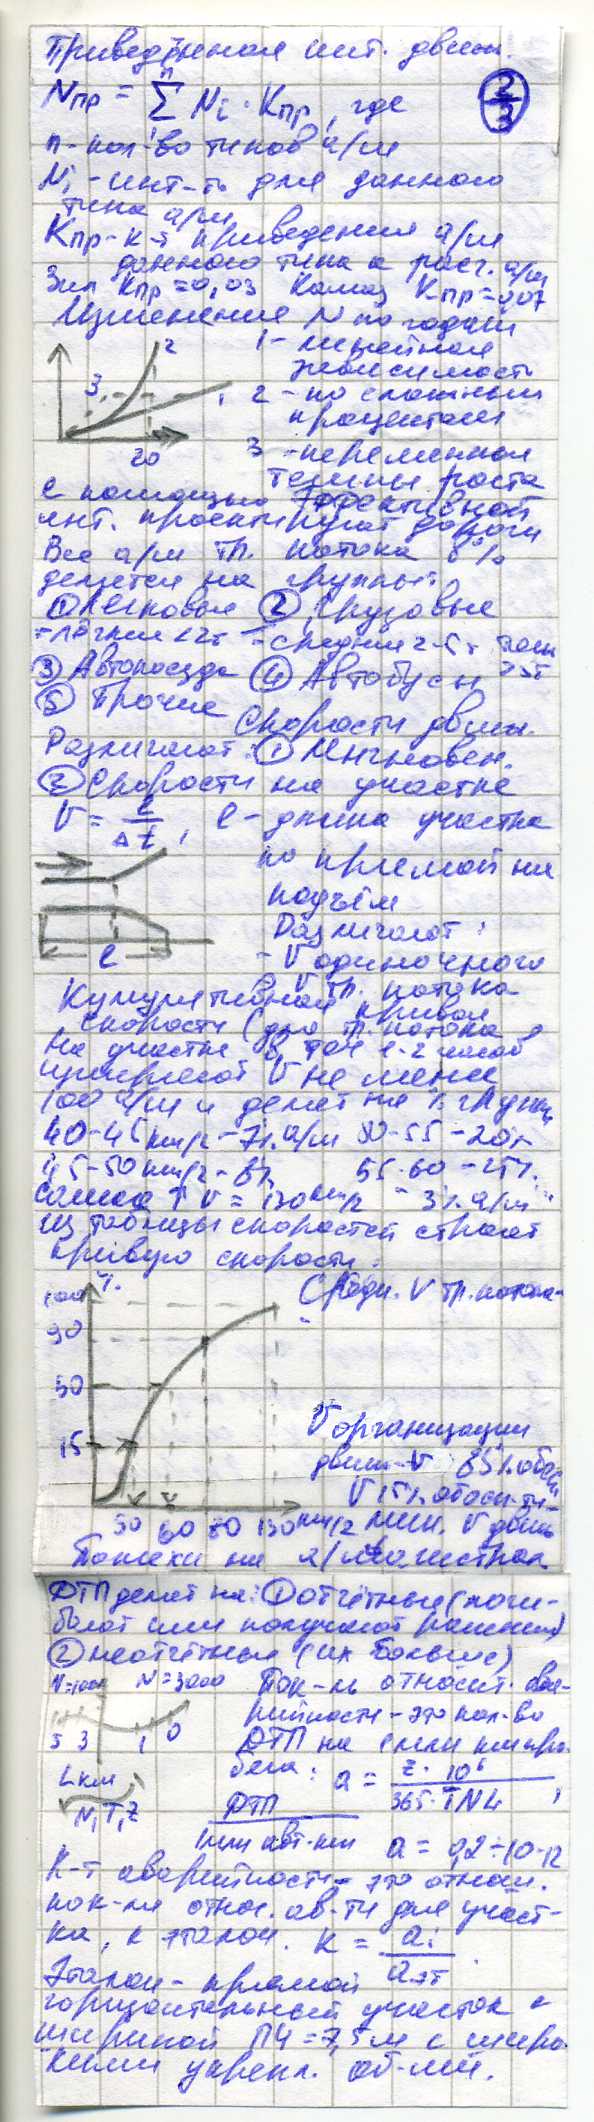 Приведённая инт. движ.
Nпр = Σ Ni · Kпр, где
n
2/3
n - кол-во типов а/м
Ni - инт-ть для данного
типа а/м
Kпр - к-т приведения а/м
данного типа к расч. а/м
Зил Kпр = 0,03 Камаз Kпр =
Изменение N по годам
1 - линейная
зависимость
2
3
1
20
2 - по сложным
процентам
3 - переменная
темпы роста
С помощью эффективной
инт. проектируют дороги
Все а/м тр. потока в %
делятся на группы:
① Легковые ② Грузовые
- лёгкие <2т - средние 2-5т тяж
>5т
③ Автопоезда ④ Автобусы
⑤ Прочие
Скорости движ.
Различают: ① Мгновен.
② Скорости на участке
V = l/Δt, l - длина участка
по прямой на
подъём
l
Различают:
- V одиночного
- V тр. потока
Кумулятивная кривая
скорости (для тр. потока
на участке в теч 1-2 часов
измеряют V не менее
100 а/м и делят на % групп
40-45 км/ч - 7% а/м 50-55 - 20%
45-50 км/ч - 8% 55-60 - 25%
самая ↑ V = 130 км/ч - 3% а/м
из таблицы скоростей строят
кривую скорости:
100 %
90
50
15
50 60 80 130 км/ч
Средн. V тр. потока -
V организации
движ - V 85% обесп
V 15% обесп-ти -
мин. V движ
на а/магистрал
ДТП делят на: ① отчётные (поги-
бают или получают ранения)
② неотчётные (их больше)
N=1000 N=3000
5 3 1 0
Пок-ль относит. ава-
рийности - это кол-во
ДТП на 1 млн км про-
бега: a = z · 10⁶ / 365 · T N L,
L км
N, T, z
ДТП / 1 млн авт-км
a = 0,2 ÷ 10-12
К-т аварийности - это отнош.
пок-ля относ. ав-ти для участ-
ка, к эталон. K = ai / aэт
Эталон - прямой
горизонтальный участок с
шириной ПЧ = 7,5 м с широ-
кими укрепл. об-ми.